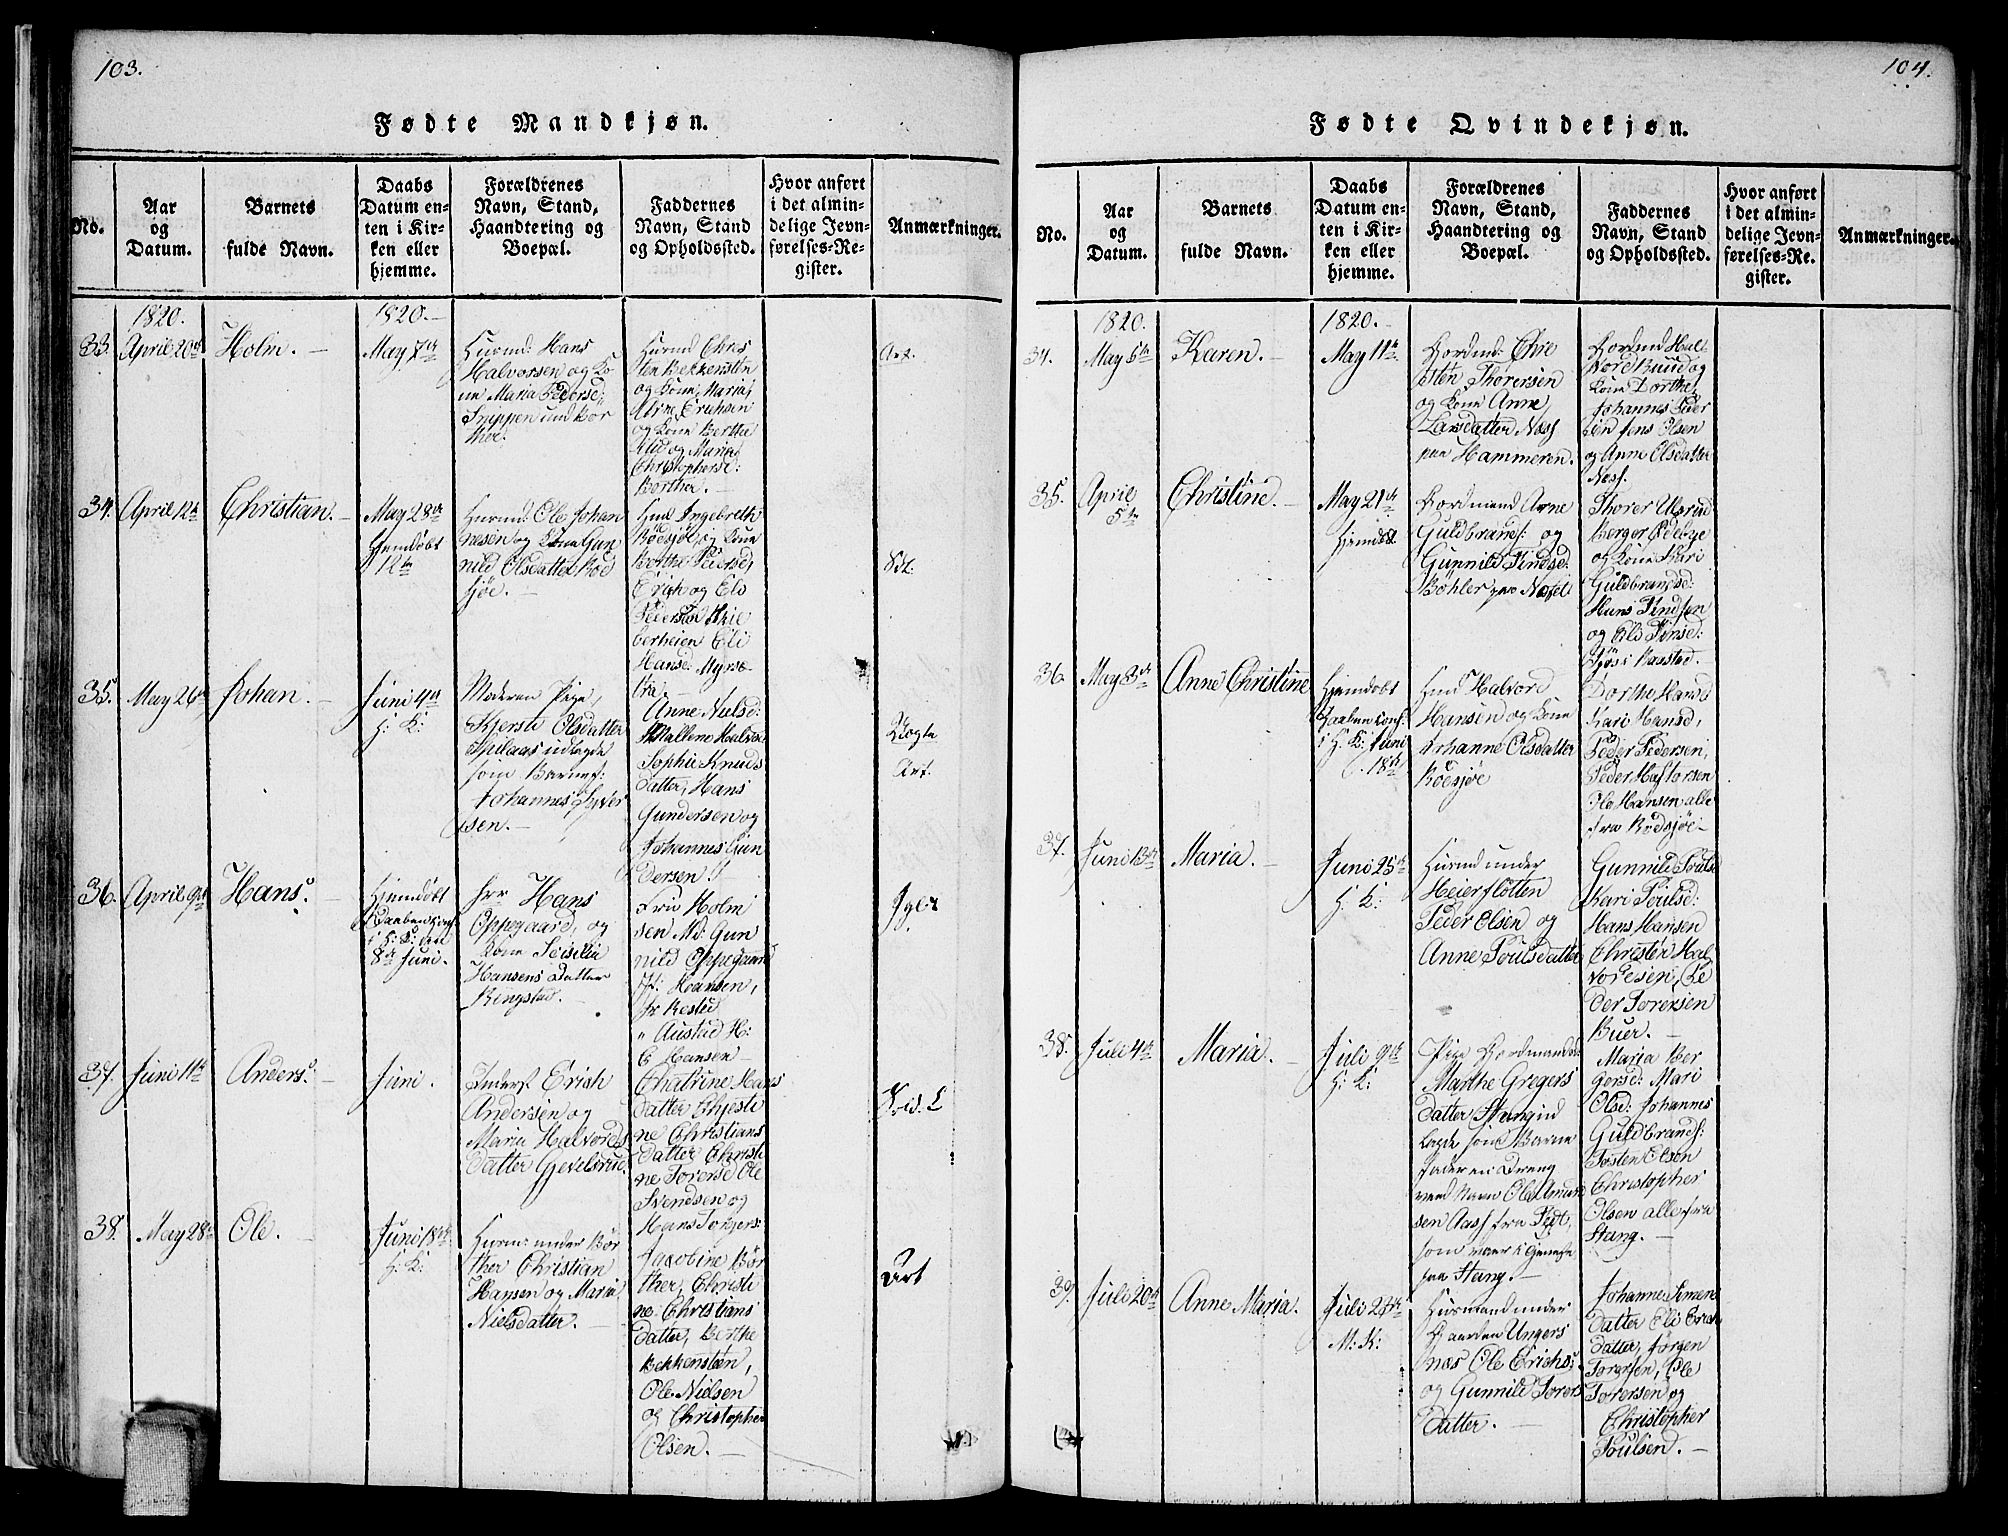 103.
Fødte Mandkjøn.
No.
Aar
og
Datum.
Barnets
fulde Navn.
Daabs
Datum en-
ten i Kir-
ken eller
hjemme.
Forældrenes
Navn, Stand,
Haandtering og
Boepæl.
Faddernes
Navn, Stand
og Opholdssted.
Hvor anført
i det almin-
delige Jevn-
førelses-Re-
gister.
Anmærkninger.
1820.
1820.
33.
April 20de
Holm.
May 7de
Husmd: Hans
Halvorsen og Ko
ne Maria Pederse;
und Bor
ther.
Husmd Chris
ten Bekkensten
og Kone, Maria
Erichsen
og Kone Berthe
og Maria
Christophersd:
Borther.
34.
April 12te
Christian.
May 28de
Hiemdøbt
12te
Husmd: Ole Johan
nesen og Kone Gun
nild Olsdatter Rød
sjøe.
Hmd Ingebreth
Rødsjøe, og Kone
Borthe Pedersd,
Erich og Els
Pedersen
berheien Eli
Hansd. Myrse
tra
35.
May 26de
Johan.
Juni 4de
H: K:
Moderen Pige,
Kjersti Olsdatter
udlagde
som Barnef:
Johannes Syver
sen.
Anne Nielsd:
Mallene Halvor
Sophie Knuds
datter, Hans
Gundersen og
Johannes Gun
dersen.
36.
April 9de
Hans.
Hjemdøbt
Daaben Conf
i H: K: den
8de Juni.
Hr Hans
Oppegaard, og
Kone Seisilia
Hansens Datter
Ringstad.
Fru Holm
sen Md: Gun
nild Oppegaard
Hansen,
Austad H:
Hansen
37.
Juni 11te
Anders.
Juni.
Inderst Erich
Andersen og
Maria Halvords
datter Gjevelsrud.
Chatrine Hans
datter Chjesti
ne Christians
datter Christi
ne Torersd Ole
Svendsen og
Hans Torgers:
38.
May 28de
Ole.
Juni 18de
H: K:
Husm: under Bør
ther Christian
Hansen og Maria
Nielsdatter.
Jacobine Bør
ther, Christi
ne Christians
datter, Berthe
Bekkensteen,
Ole Nielsen
og Christopher
Olsen.
104.
Fødte Qvindekjøn.
No.
Aar
og
Datum.
Barnets
fulde Navn.
Daabs
Datum en-
ten i Kir-
ken eller
hjemme.
Forældrenes
Navn, Stand,
Haandtering og
Boepæl.
Faddernes
Navn, Stand
og Opholdssted.
Hvor anført
i det almin-
delige Jevn-
førelses-Re-
gister.
Anmærkninger.
1820.
1820.
34.
May 5te
Karen.
May 11te
Gordmd: Chri
sten Thorersen
og Kone Anne
Larsdatter Næss
paa Hammeren.
Gordmd Hal
vord Ruud og
Kone Dorthe,
Johannes Peder
sen Jens Olsen
og Anne Olsdatter
Næss.
35.
April
5te
Christine.
May 21de
Hjemdøbt
Gordmand Arne
Guldbrands: og
Gunnild Findsd:
Bøhler paa Næset
Thorer Ulsrud
Berger Ødebye
og Kone Kari
Guldbrandsd:
Hans Findsen
og Eli Finsd:
36.
May 3de
Anne Christine
Hjemdøbt
Daaben Conf.
i H: K: Juni
18de
Hmd Halvord
Hansen og Kone
Johanne Olsdatter
Rødsjøe
Dorthe Hansd
Kari Hansd,
Peder Pedersen,
Peder Hastorsen
Ole Hansen alle
fra Rødsjøe
37.
Juni 13de
Maria.
Juni 25de
H: K:
Husmd under
Heierflotten
Peder Olsen og
Anne Poulsdatter
Gunnild Poulsd
Kari Poulsd:
Hans Hansen
Christen Hal
vorsen, Pe
der Torersen
Buer.
38.
Juli 4de
Maria.
Juli 9de
H: K:
Pige Gordmands
Marthe Gregers
datter Stang ud
lagde som Barne
fader en Dreng
ved Navn Ole Amun
sen Aass fra
som var i Tieneste
paa Stang.
Maria Ber
gersd: Mari
Olsd: Johannes
Guldbrands:
Tosten Olsen
Christopher
Olsen alle fra
Stang.
39.
Juli 20de
Anne Maria.
Juli 28de
M: K:
Husmand under
Gaarden Ungers
næs Ole Erichs:
og Gunnild Torers
datter.
Johanne Simen
datter Eli Erich
datter, Jørgen
Torersen, Ole
Torersen og
Christopher
Poulsen.